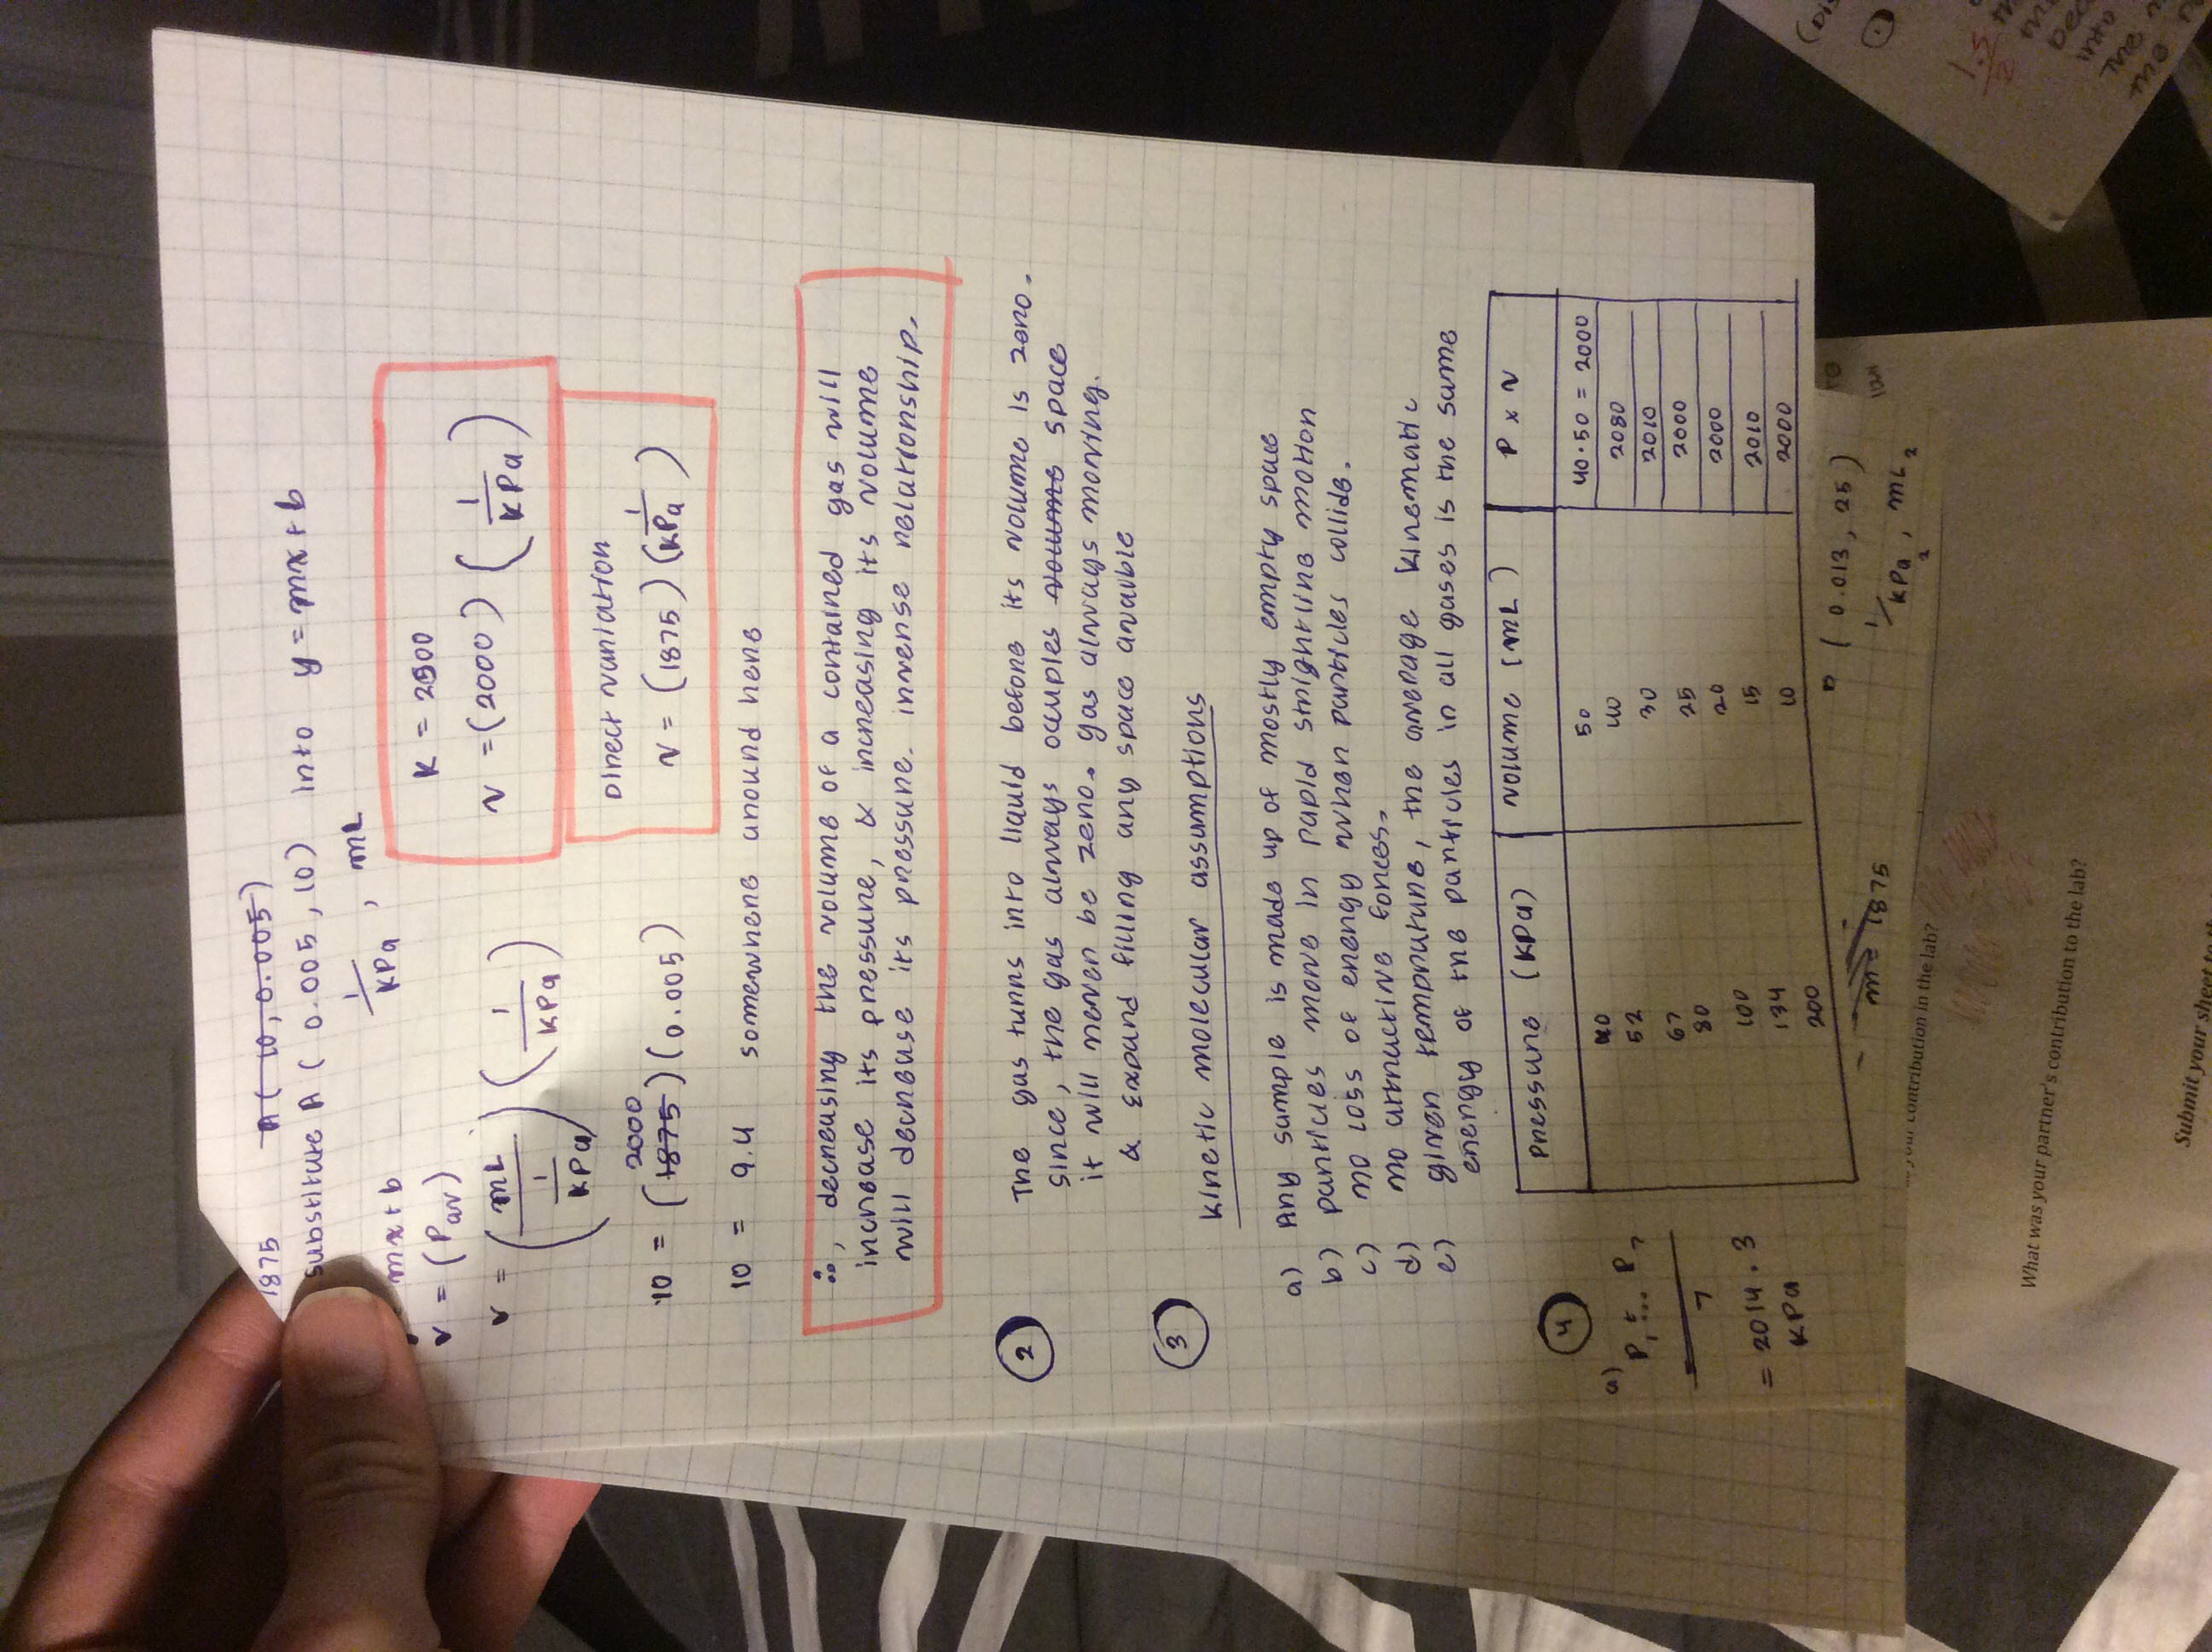 1875 A(10, 0.005)
substitute A (0.005, 10) into y = mx + b
1/KPa , mL
mx + b
v = (Pav)
v = (mL / (1/KPa)) (1/KPa)
K = 2000
v = (2000) (1/KPa)
10 = (1875) (0.005)
2000
Direct variation
v = (1875) (1/KPa)
10 = 9.4 somewhere around here
∴, decreasing the volume of a contained gas will
increase its pressure, & increasing its volume
will decrease its pressure. inverse relationship.
2 The gas turns into liquid before its volume is zero.
since, the gas always occupies volume space
it will never be zero. gas always moving.
& expand filling any space avaible
3 Kinetic molecular assumptions
a) Any sample is made up of mostly empty space
b) particles move in rapid straightline motion
c) no loss of energy when particles collide.
d) no attractive forces.
e) given temprature, the average kinematic
energy of the particles in all gases is the same
4
a) P1 + ... P7
7
= 2014.3
KPa
Pressure (KPa) Volume (mL) P x v
40 50 40·50 = 2000
52 40 2080
67 30 2010
80 25 2000
100 20 2000
134 15 2010
200 10 2000
m = 1875
B (0.013, 25)
1/KPa2 , mL2
contribution in the lab?
What was your partner's contribution to the lab?
Submit your sheet to
1.5
2